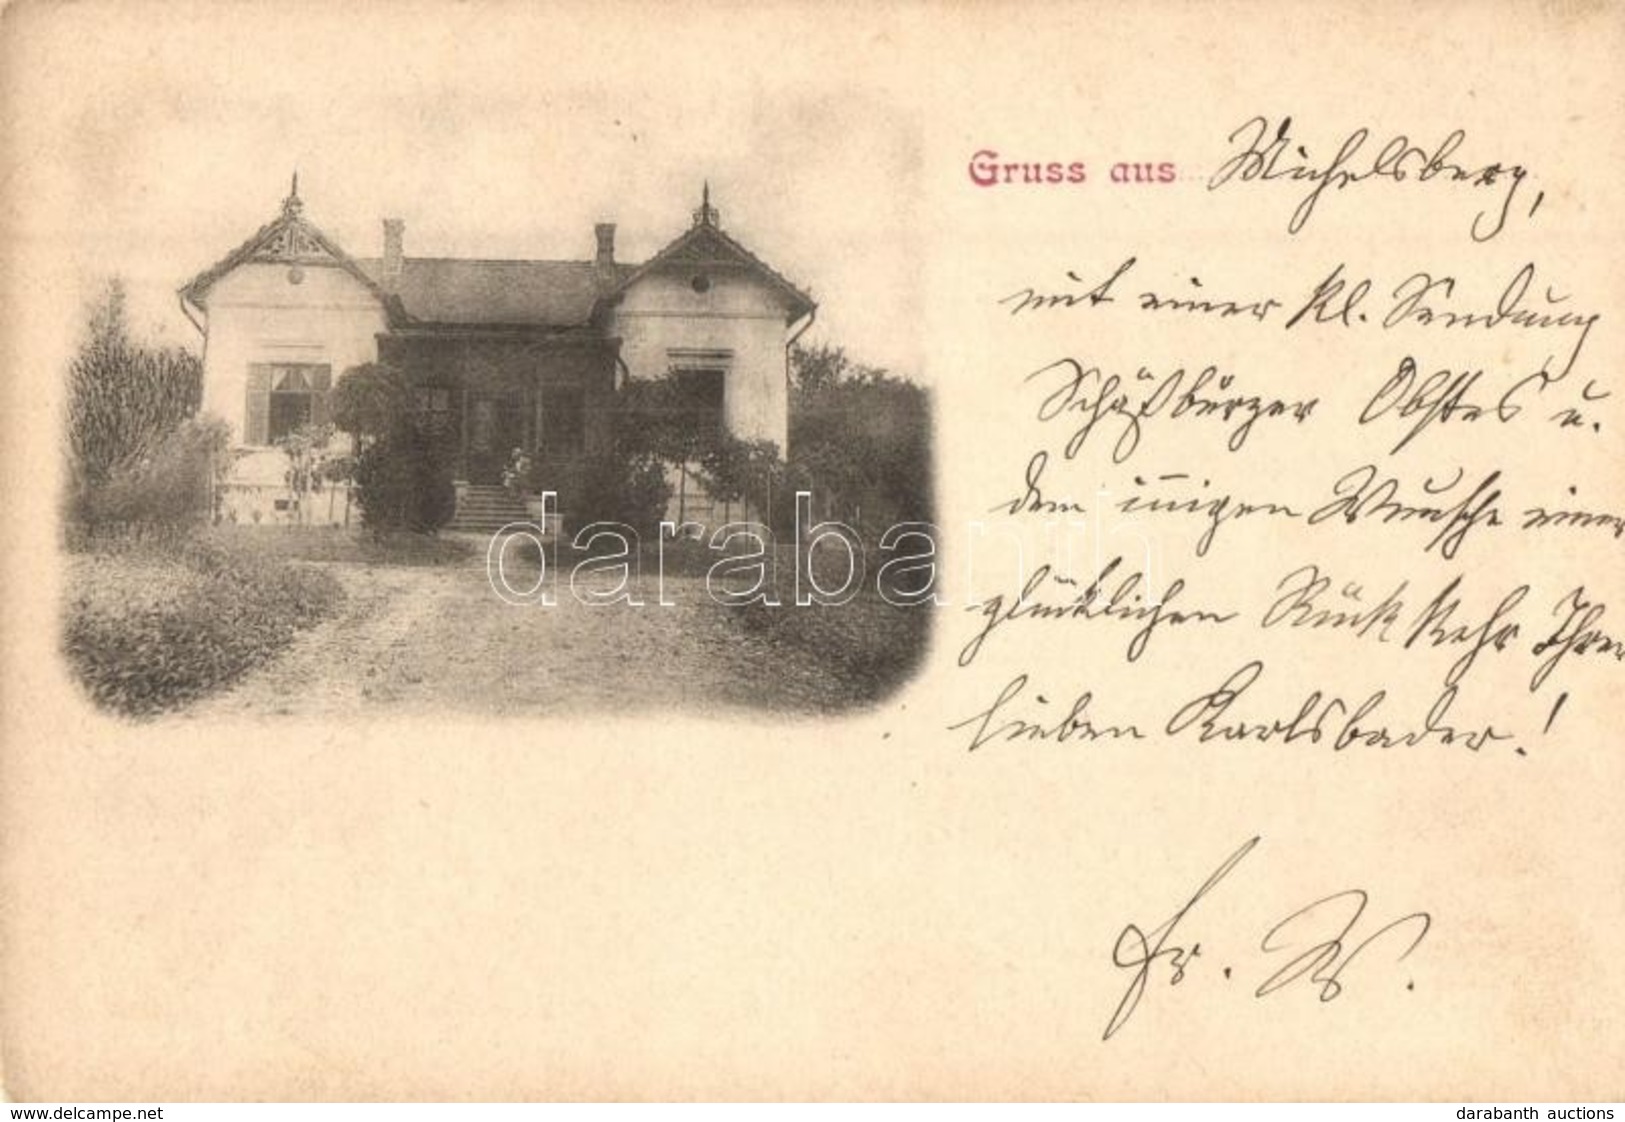 Gruss aus Michelsberg,
mit einer kl. Sendung
Schäßburger Obstes u.
dem innigen Wunsche einer
glücklichen Rückkehr Ihrer
lieben Karlsbader!
Fr. W.
darabanth
www.delcampe.net
darabanth auctions